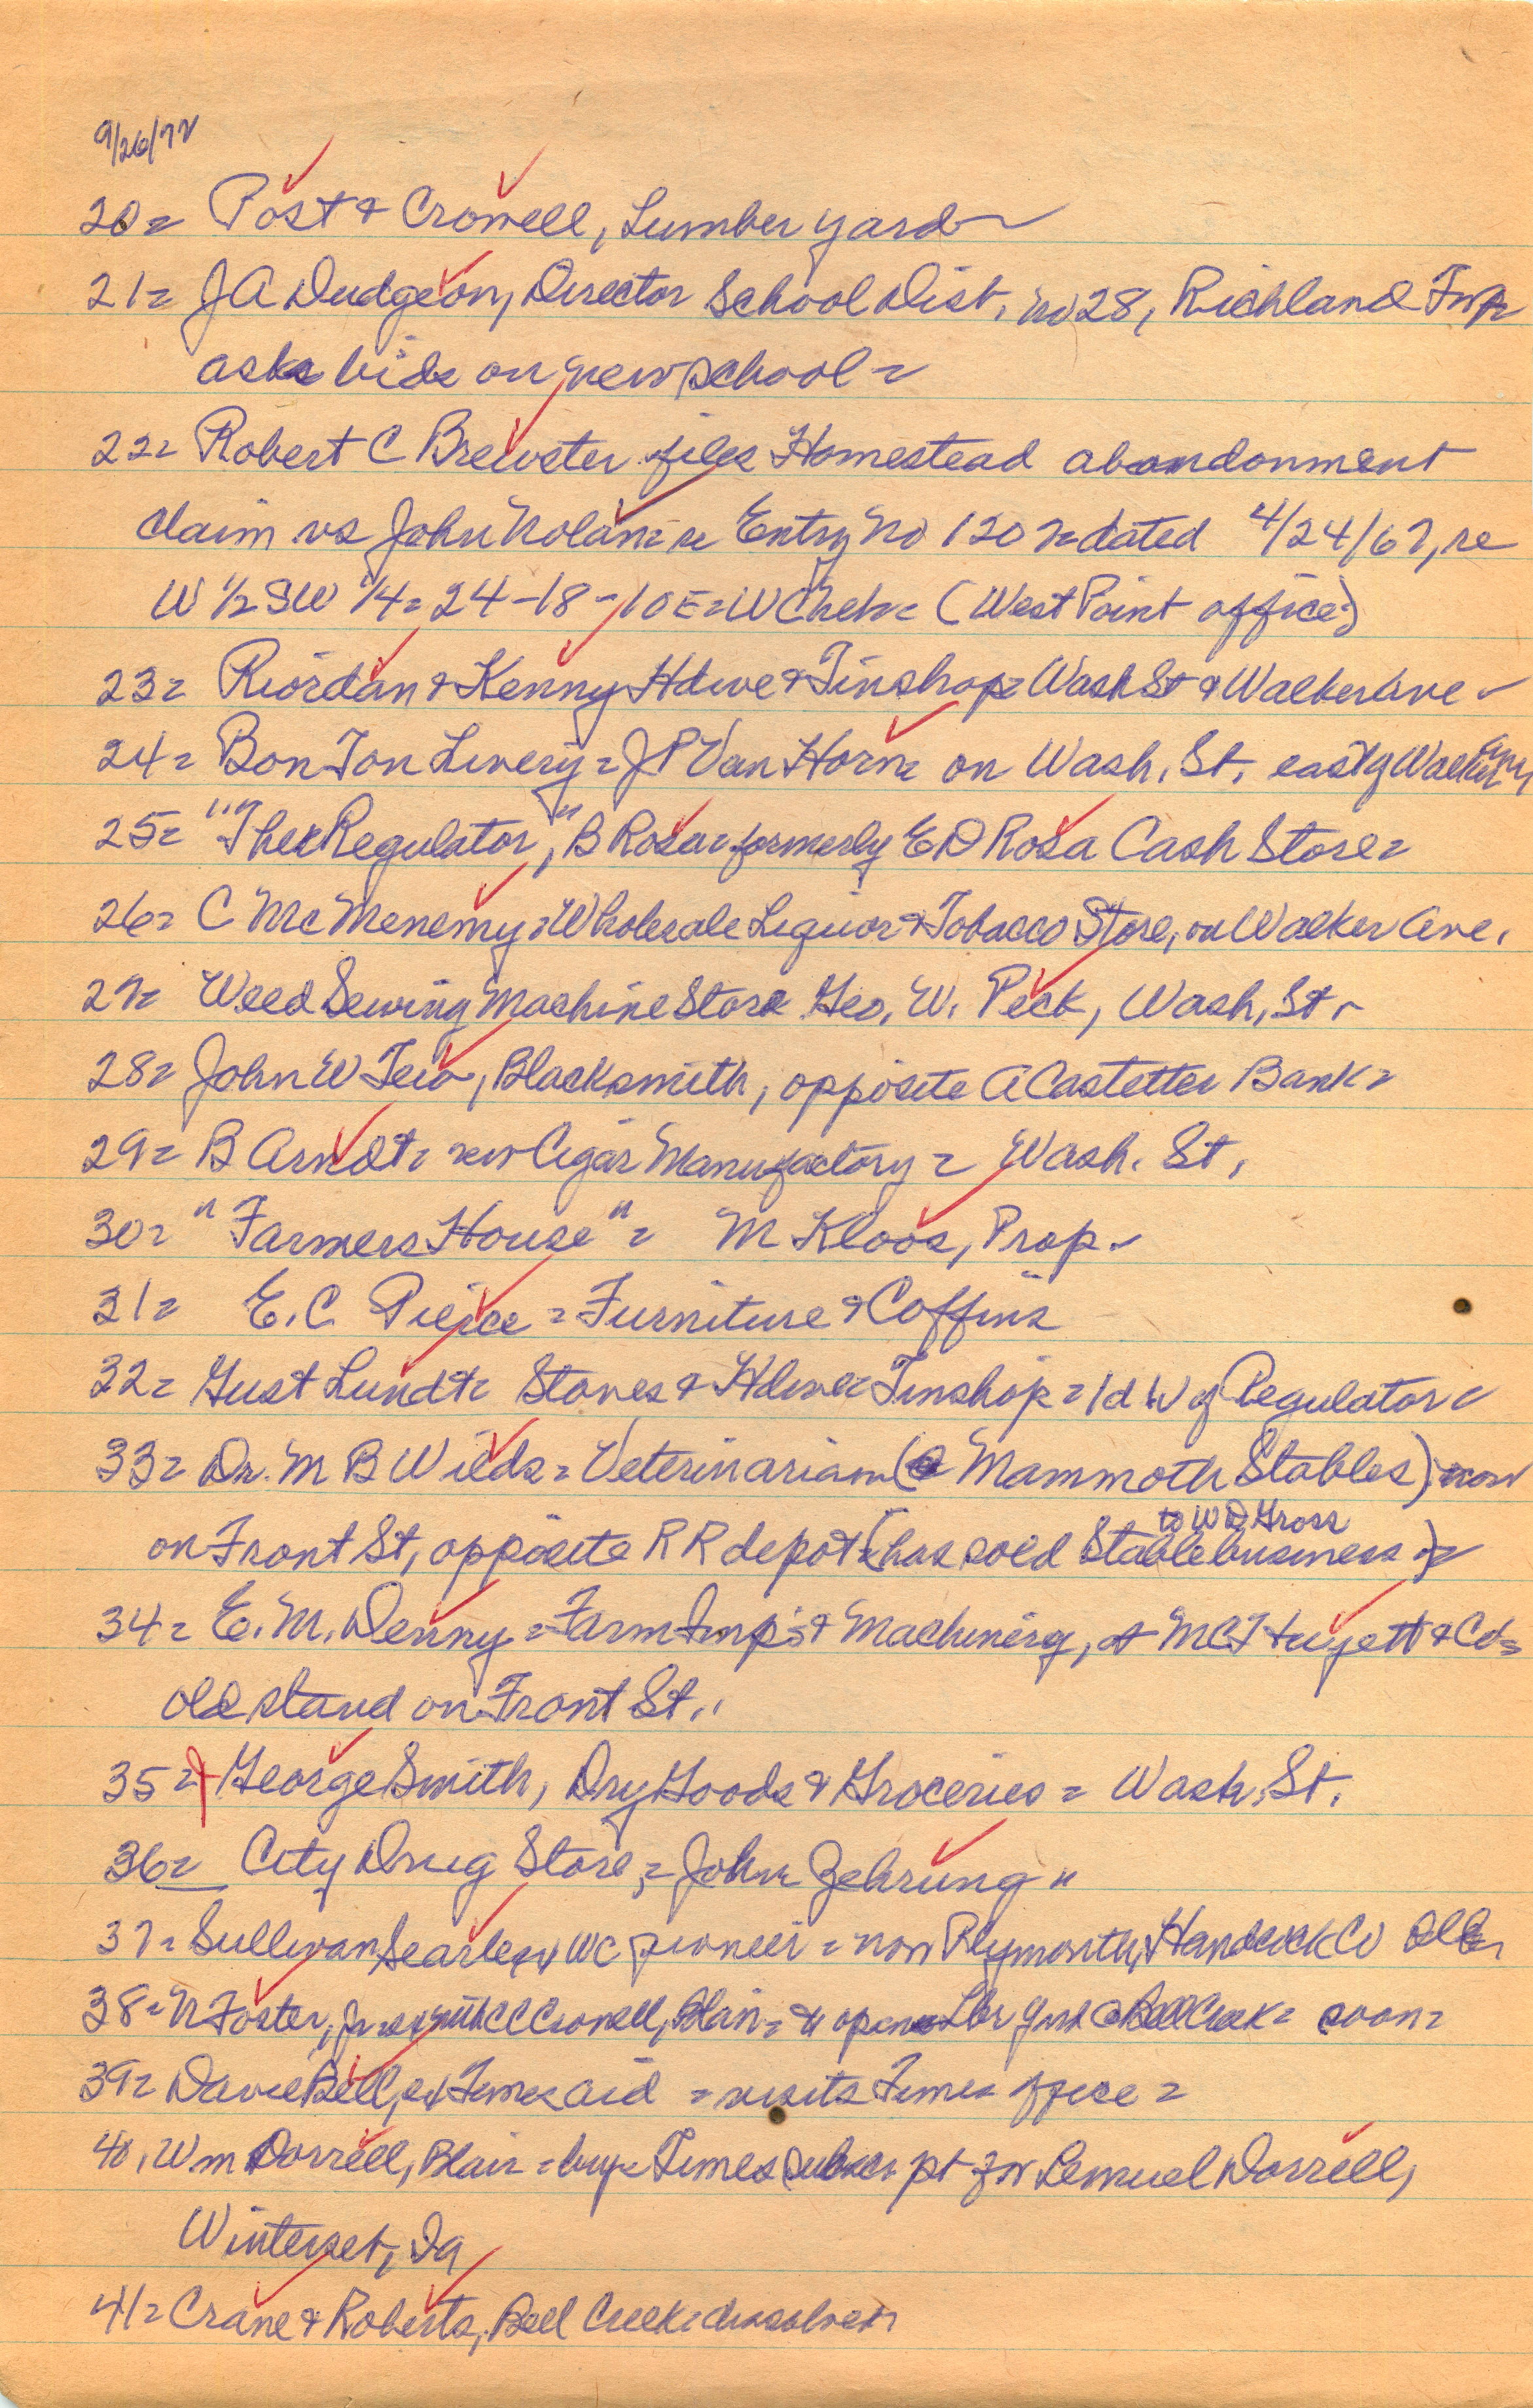 9/26/72
20= Post & Crowell, Lumber yard
21= J A Dudgeon, Director School Dist. no 28, Richland Twp
asks bids on new school =
22= Robert C Brewster files Homestead abandonment
claim vs John Nolan = re Entry No 1207 = dated 4/24/67, re
W 1/2 SW 1/4 = 24-18-10E = WCNeb = (West Point office)
23= Riordan & Kenny Hdwe & Tinshop = Wash St & Walker Ave -
24= Bon Ton Livery = J P Van Horn = on Wash. St. east of Walker Ave
25= "The Regulator," B Rosa = formerly E D Rosa Cash Store =
26= C McMenemy = Wholesale Liquor & Tobacco Store, on Walker Ave.
27= Weed Sewing Machine Store Geo. W. Peck, Wash. St -
28= John W Tew, Blacksmith, opposite A Castetter Bank =
29= B Arndt = new Cigar Manufactory = Wash. St.
30= "Farmers House" = M Kloos, Prop -
31= E. C. Pierce = Furniture & Coffins
32= Gust Lundt = Stoves & Hdwe = Tinshop = 1d W of Regulator =
33= Dr. M B Wilds = Veterinarian (@ Mammoth Stables) now
on Front St, opposite R R depot = (has sold Stable business to W D Gross) =
34= E. M. Denny = Farm Imps & Machinery, at McT Huyett & Co =
old stand on Front St.
35= George Smith, Dry Goods & Groceries = Wash. St.
36= City Drug Store, = John Gehrung "
37= Sullivan Searles, WC pioneer = now Plymouth, Handcock Co Ills
38= N Foster, Jr = with C C Crowell, Blair = to open Lbr yard @ Bell Creek = soon =
39= Dave Bell, ex Times aid = visits Times office =
40. Wm Dorrell, Blair = buys Times subscript for Lemuel Dorrell,
Winterset, Ia
41= Crane & Roberts, Bell Creek = dissolves